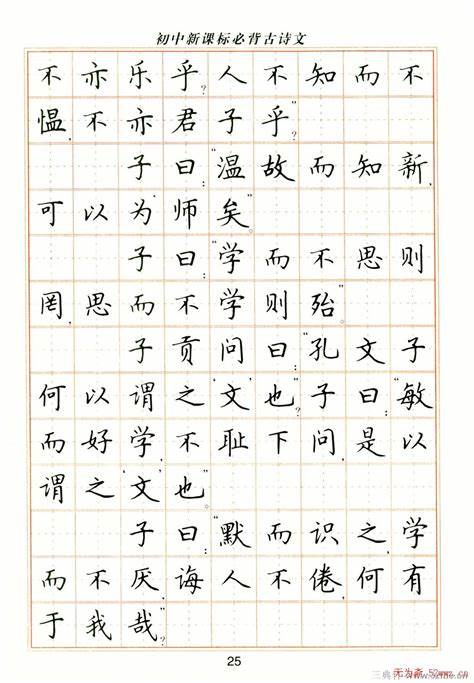 初中新课标必背古诗文
不亦乐乎?人不知而不
愠,不亦君子乎?"
子曰:"温故而知新,
可以为师矣。"
子曰:"学而不思则
罔,思而不学则殆。"
子贡问曰:"孔文子
何以谓之'文'也?"子曰:"敏
而好学,不耻下问,是以
谓之'文'也。"
子曰:"默而识之,学
而不厌,诲人不倦,何有
于我哉?"
25